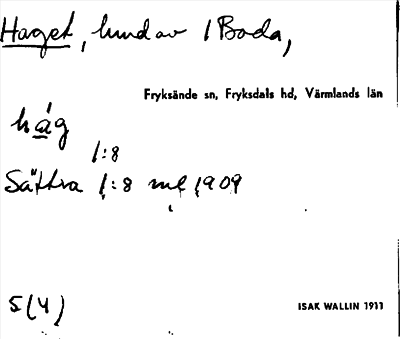 Haget, hund av 1 Boda,
Fryksände sn, Fryksdals hd, Värmlands län
håg
1:8
Sättra 1:8 ml 1909
5(4)
ISAK WALLIN 1911